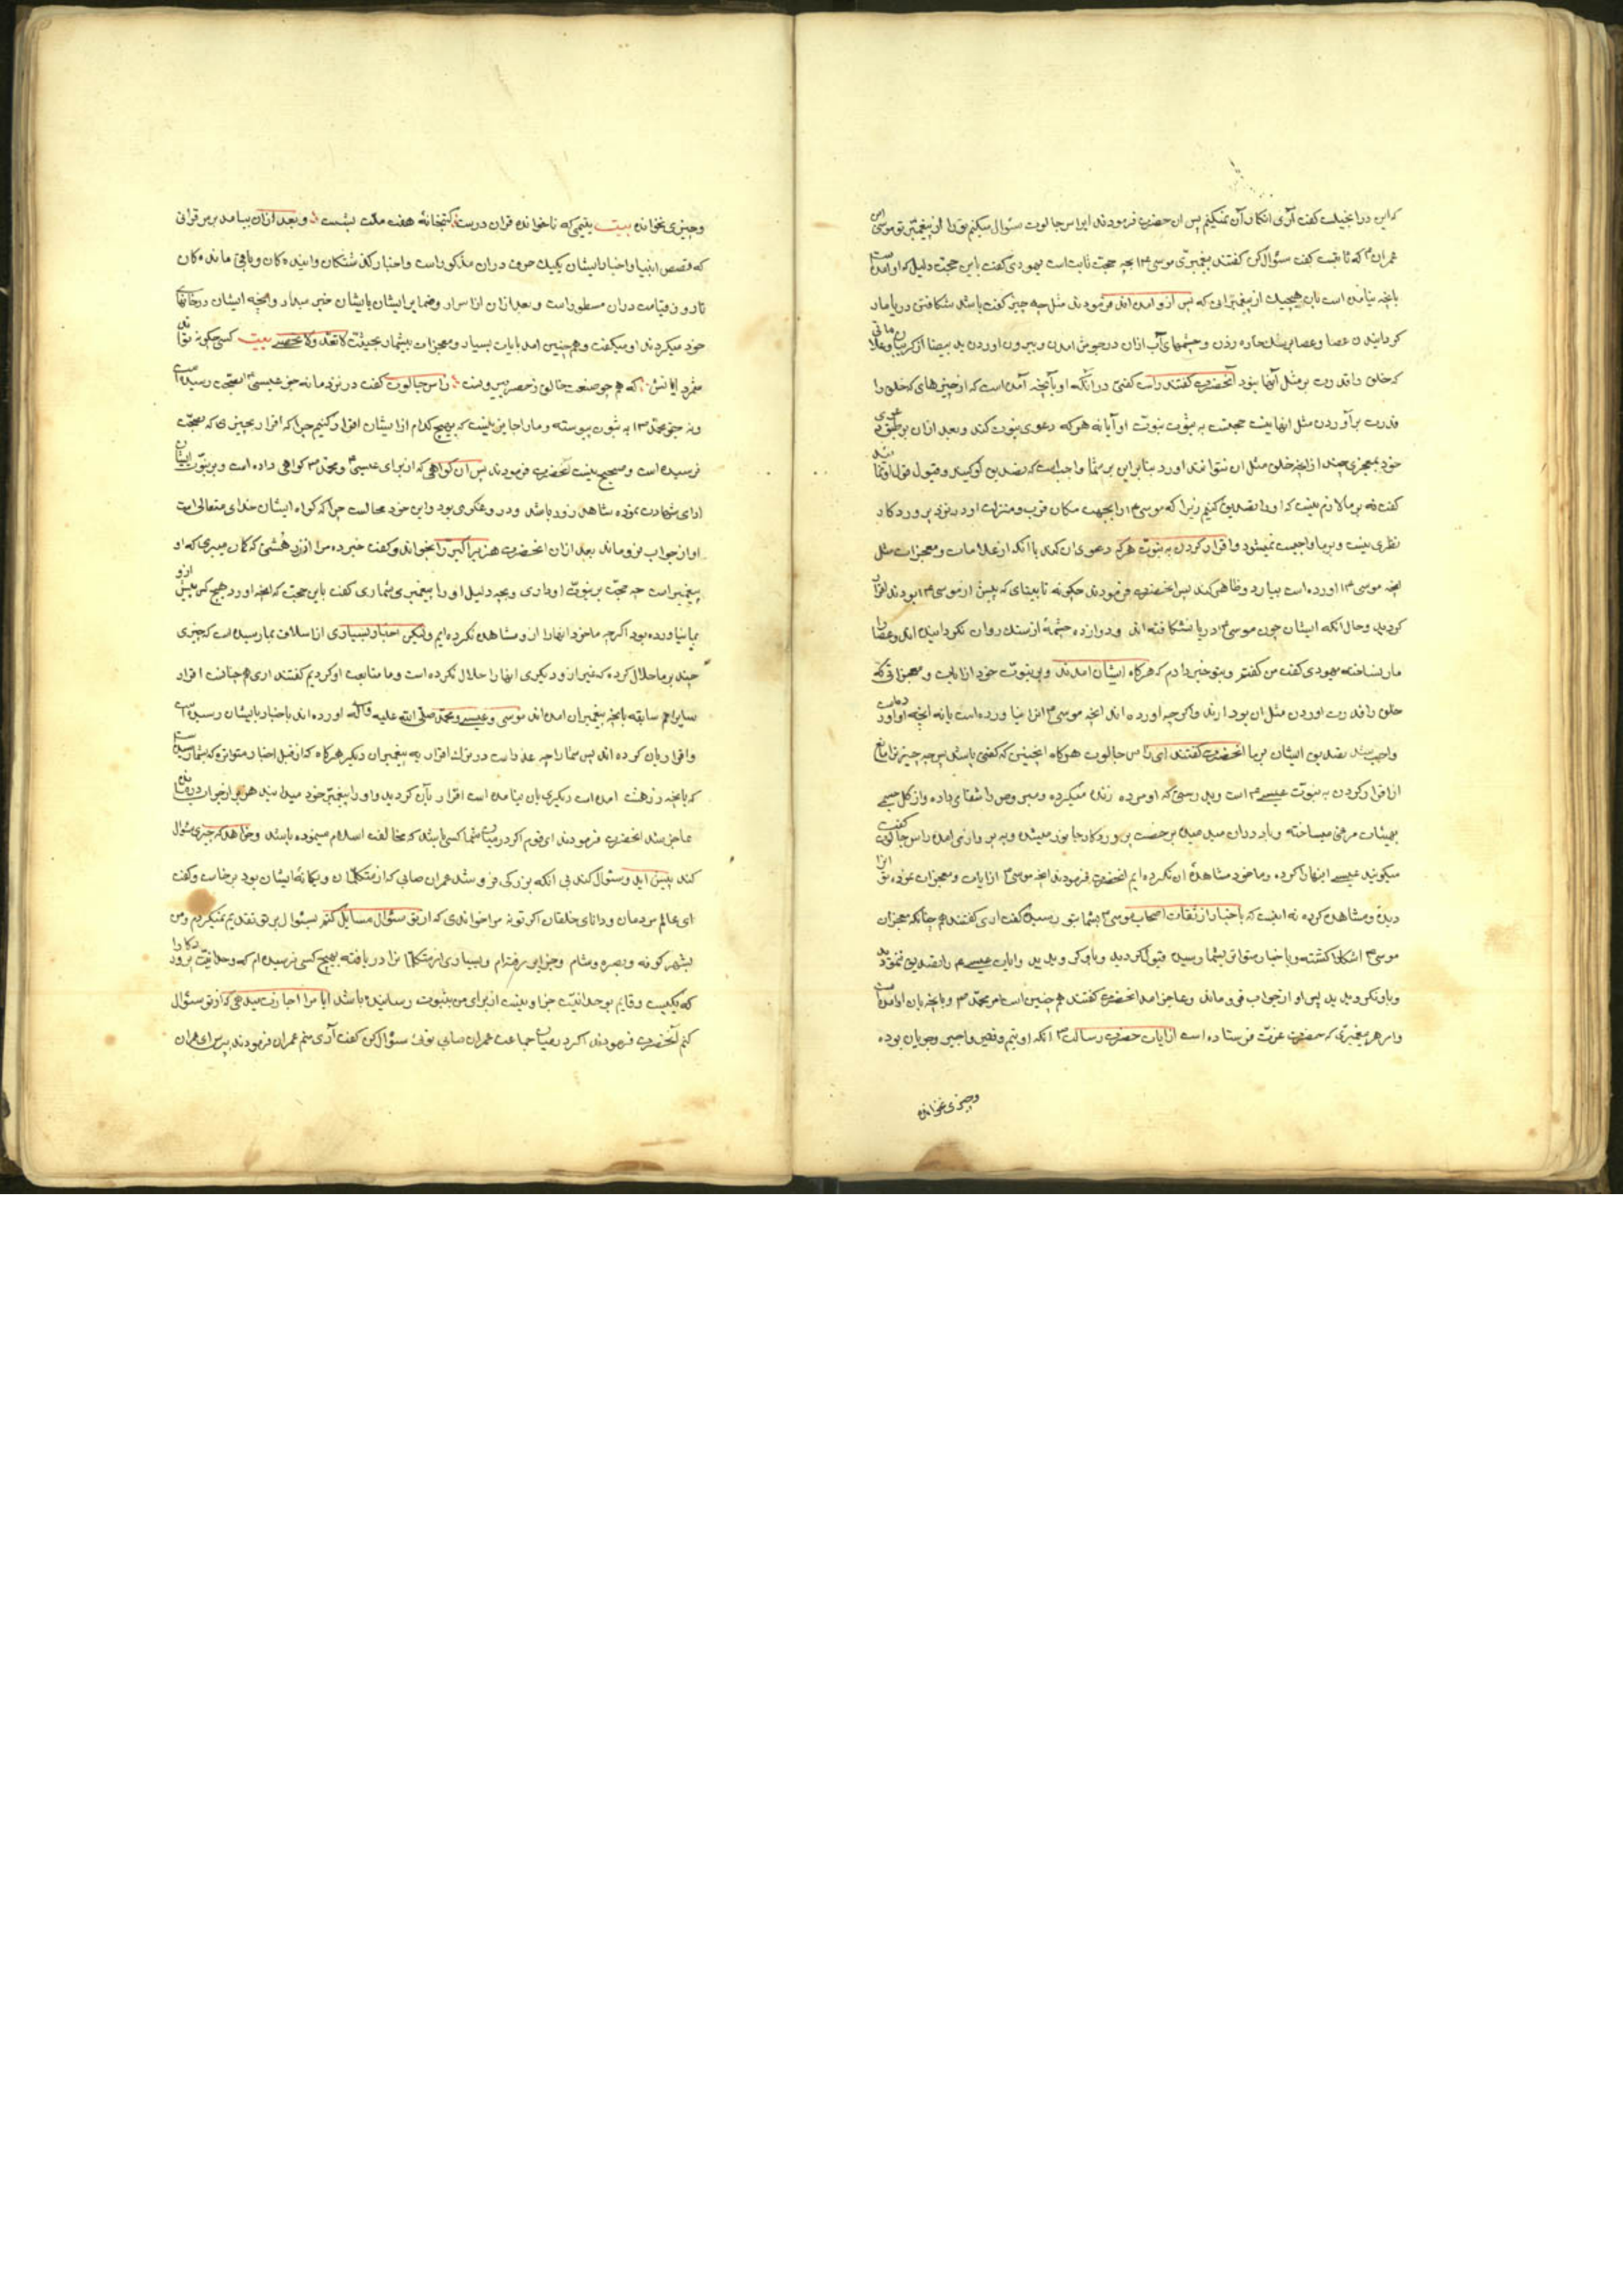 که این در انجیلت گفت آری انکار آن نمیکنم پس ان حضرت فرمودند ایراس جالوت سئوال میکنم ترا از پیغمبر تو موسی ابن
عمران که ثابتست گفت سئوال کن گفتند پیغمبری موسی بچه حجت ثابت است یهودی گفت باین حجت دلیل که او آمده است
بانچه نیامده است بان هیچیک از پیغمبرانی که پس ازو امده اند فرمودند مثل چه چیز گفت باشد شکافتن دریا و مار
کردانیدن عصا و عصا بر سنك خاره زدن و چشمهای آب ازان در جوش امدن و بیرون اوردن ید بیضا از کریبان و علاماتی
که خلق را قدرت بر مثل آنها نبود آنحضرت گفتند راست گفتی در انکه او بآنچه آمده است که از چیزهای که خلق را
قدرت بر آوردن مثل انها نیست حجتست به ثبوت نبوت او آیا نه هر که دعوی نبوت کند و بعد ازان بر طبق دعوی
خود بمعجزی چند از انچه خلق مثل ان نتوانند اورد بنابراین بر شما واجبست که تصدیق او کنید و قبول قول او نمائید
گفت نه بر ما لازم نیست که او را تصدیق کنیم زیرا که موسی را بجهت مکان قرب و منزلت او در نزد پروردکار
نظری نیست و بر ما واجب نمیشود و اقرار کردن به نبوت هر که دعوی ان کند تا انکه از علامات و معجزات مثل
انچه موسی اورده است بیارد و ظاهر کند پس انحضرت فرمودند چکونه تا بینبیای که پیش از موسی بودند اقرار
کردید و حال آنکه ایشان چون موسی دریا نشکافته اند و دوازده چشمهٔ از سنك روان نکردانیده اند و عصا را
مار نساخته یهودی گفت من گفتم و بتو خبر دادم که هرکاه ایشان امدند و بر نبوت خود از ایات و معجزاتی که
خلق را قدرت اوردن مثل ان بود ارند و اکر چه اورده اند انچه موسی انرا نیاورده است یا نه انچه او اورد
واجب شد تصدیق ایشان بر ما انحضرت گفتند ای راس جالوت هرکاه اینچنین که گفتی باشد پس چه چیز ترا مانع
از اقرار کردن به نبوت عیسی است و بدرستی که او مرده زنده میکرده و مبروص را شفا میداده و از کل
بهیئات مرغی میساخته و باد دران میدمید بر حضت پروردکار جانور میشد و به پرواز می امد راس جالوت گفت
میکویند عیسی اینها را کرده و ما خود مشاهدهٔ ان نکرده ایم انحضرت فرمودند انچه موسی از ایات و معجزات نموده تو انرا
دیدهٔ و مشاهده کرده نه انست که باخبار از ثقات اصحاب موسی بشما رسیده گفت اری گفتند هم چنانکه معجزات
موسی اشکارا کشته و باخبار متواتر بشما رسید قبول کردید و باور کرویدید و ایات عیسی هم را تصدیق ننمودید
و باو نکرویدید پس او از جواب فروماند و عاجز امد انحضرت گفتند همچنین است امر محمد و بانچه بان امده است
و امر هر پیغمبری که حضرت عزت فرستاده است از ایات حضرت رسالت انکه او یتیم و فقیر و اجیر و جوبان بوده
وچیزی نخوانده
وچیزی نخوانده بیت یتیمی که ناخوانده قران درست کتبخانهٔ هفت ملت بشست و بعد ازان بیامد بر من قرانی
که قصص انبیا و اخبار ایشان یکیك حرف دران مذکور است و اخبار کذشتکان و ایندهکان و باقی ماندهکان
تا روز قیامت دران مسطور است و بعد ازان از اسرار و ضمایر ایشان بایشان خبر میداد و انچه ایشان در خانهای
خود میکردند او میگفت و هم چنین امد بایات بسیار و معجزات بیشمار بحیثیت لا تعد ولا تحصی بیت کسی چکونه تواند
شمرد ایاتش که هم چو صنعت خالق ز حصر بیرونست راس جالوت گفت در نزد ما نه خبر عیسی بصحت رسیده است
و نه خبر محمد به ثبوت پیوسته و ما را جایز نیست که بهیچ کدام از ایشان اقرار کنیم چرا که اقرار بچیزی که بصحت
نرسیده است و صحیح نیست انحضرت فرمودند پس ان کواهی که از برای عیسی و محمد کواهی داده است و بر نبوت ایشان
ادای شهادت نموده شاهد زور باشد و دروغکوی بود و این خود محالست چرا که کواه ایشان خدای متعالی است
او از جواب فروماند بعد ازان انحضرت هزبر اکبر را بخواند و گفت خبر ده مرا از زردهشتی که کمان میبری که او
پیغمبر است چه حجت بر نبوت او داری و بچه دلیل او را پیغمبر میشماری گفت باین حجت که انچه او اورد هیچ کس پیش ازو
بما نیاورده بود اگرچه ما خود انها را ازو مشاهده نکرده ایم ولیکن اخبار بسیاری از اسلاف بما رسیده است که چیزی
چند بر ما حلال کرده که غیر ازو دیکری انها را حلال نکرده است و ما متابعت او کردیم گفتند اری هم چنانست اقرار
سایر امم سابقه بانچه پیغمبران امده اند موسی و عیسی و محمد صلی الله علیه واله اورده اند باخبار بایشان رسیده است
و اقرار بان کرده اند پس شما را چه عذر است در ترك اقرار به پیغمبران دیکر هرکاه که از قبل اخبار متواتره که بشما رسیده است
که بانچه زردهشت امده است دیکری بان نیامده است اقرار بآن کردید و او را پیغمبر خود میدانید هزبر از جواب درماند
عاجز شد انحضرت فرمودند ای قوم اکر در میان شما کسی باشد که مخالفت اسلام مینموده باشد و خواهد که چیزی سئوال
کند پیش اید و سئوال کند بی انکه بزرکی فروشد عمران صابی که از متکلمان و یکانهٔ ایشان بود برخاست و گفت
ای عالم مردمان و دانای خلقان اکر تو نه مرا خواندی که از تو سئوال مسایل کنم بسئوال بر تو تقدیم نمیکردم و من
بشهر کوفه و بصره و شام و جزایر رفته ام و بسیاری از متکلمان را دریافته بهیچ کسی نرسیده ام که وحدانیت پروردکار را
که یکیست و قایم بوحدانیت جز او نیست از برای من بثبوت رسانیده باشد ایا مرا اجازت میدهی که از تو سئوال
کنم آنحضرت فرمودند اکر در میان جماعت عمران صابی توئی سئوال کن گفت آری منم عمران فرمودند بپرس ای عمران